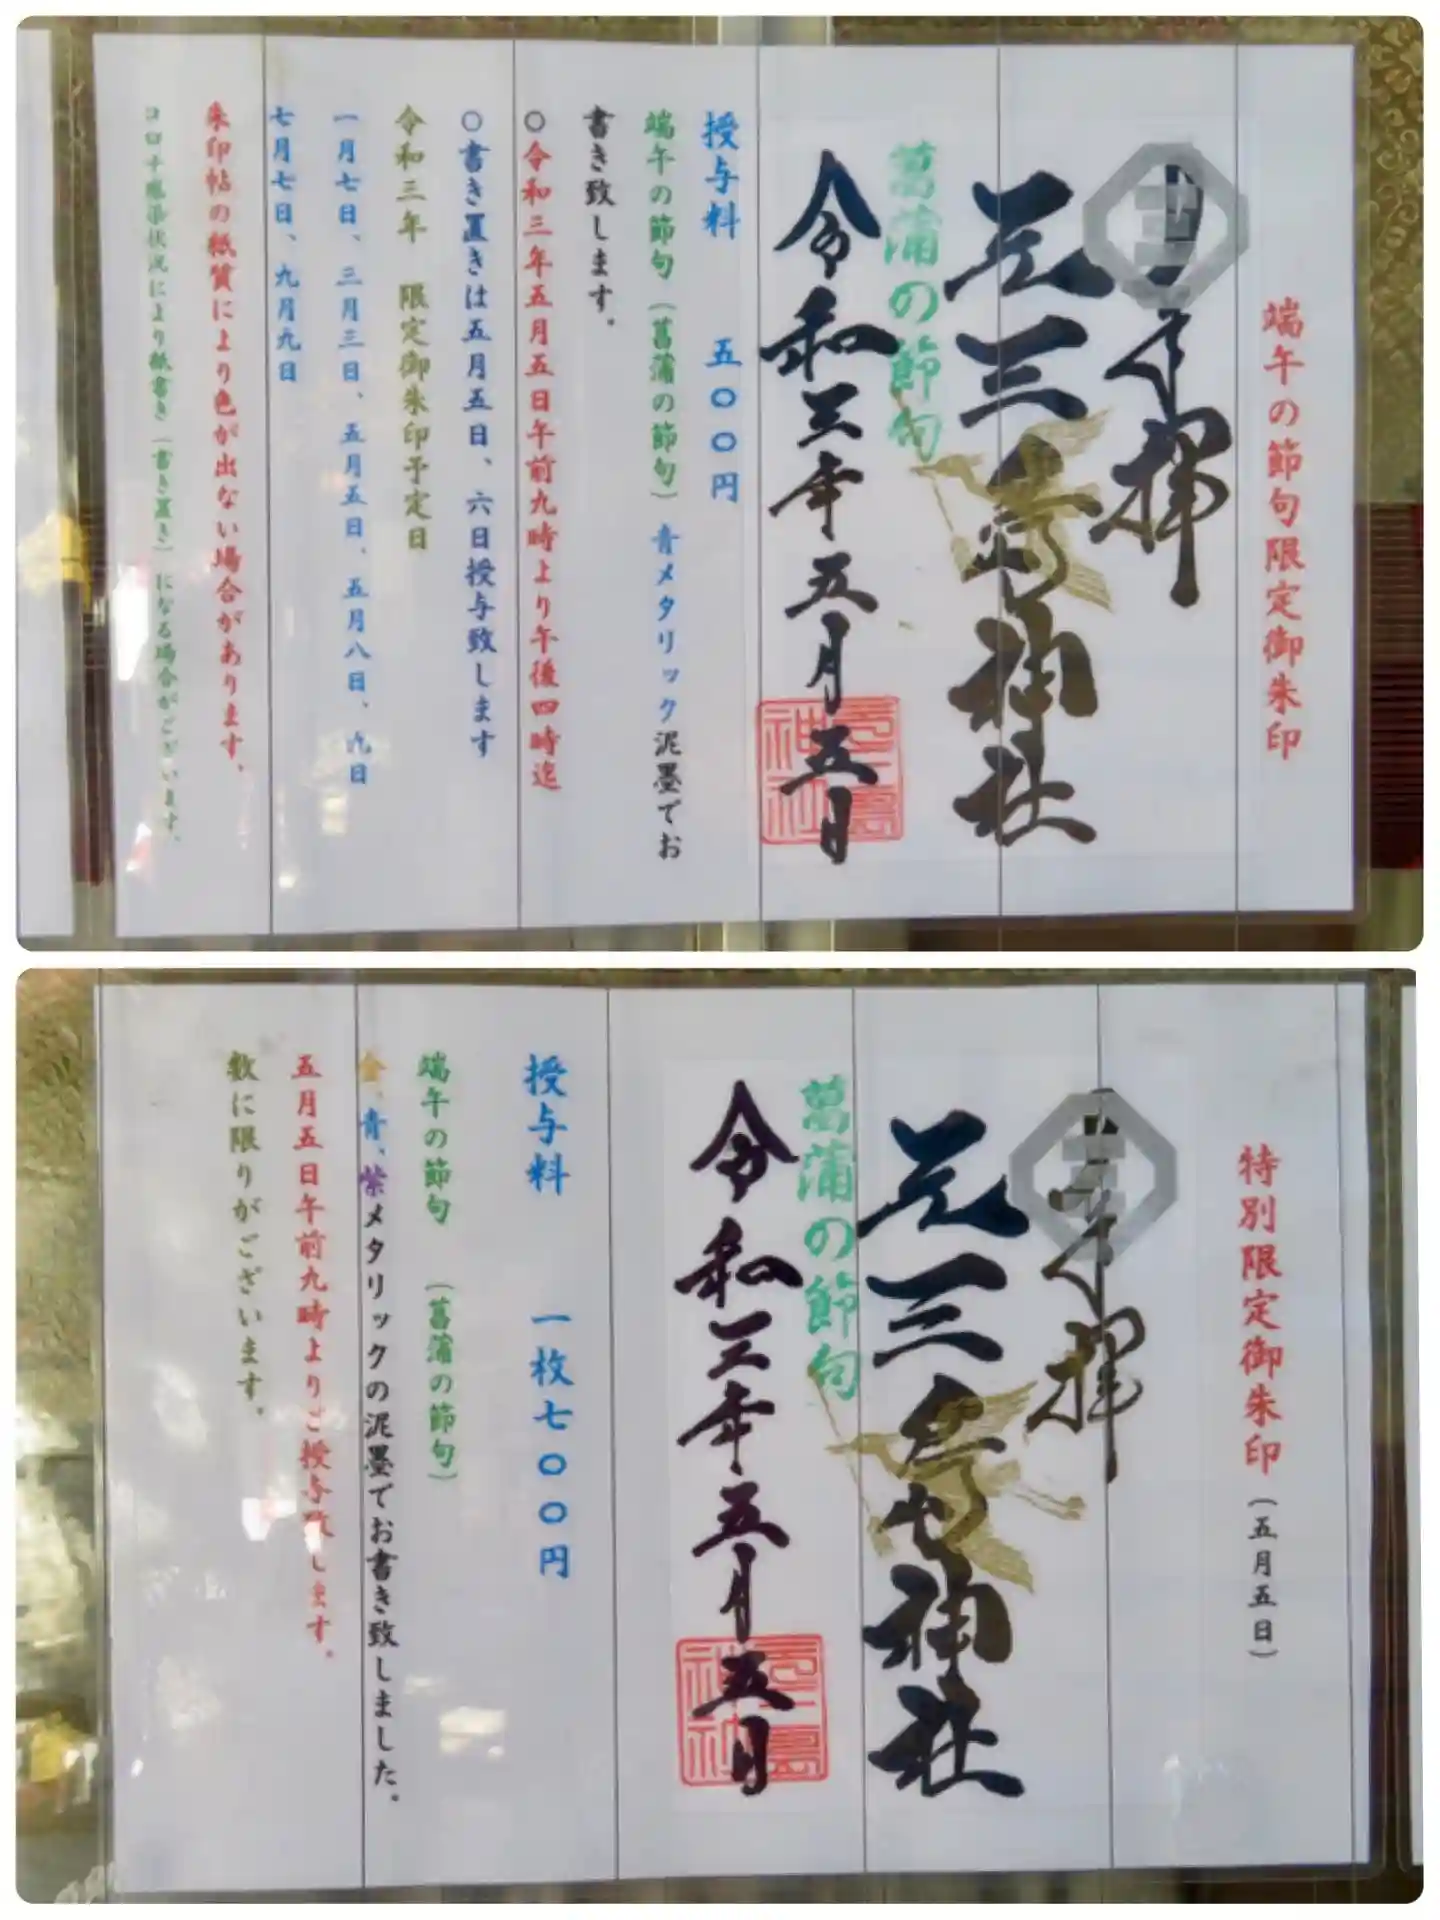 端午の節句限定御朱印
奉拝
元三島神社
菖蒲の節句
令和三年五月五日
授与料　五〇〇円
端午の節句（菖蒲の節句）青メタリック泥墨でお
書き致します。
〇令和三年五月五日午前九時より午後四時迄
〇書き置きは五月五日、六日授与致します
令和三年　限定御朱印予定日
一月七日、三月三日、五月五日、五月八日、九日
七月七日、九月九日
朱印帖の紙質により色が出ない場合があります。
コロナ感染状況により紙書き（書き置き）になる場合がございます。
特別限定御朱印（五月五日）
奉拝
元三島神社
菖蒲の節句
令和三年五月五日
授与料　一枚七〇〇円
端午の節句　（菖蒲の節句）
金、青、紫メタリックの泥墨でお書き致しました。
五月五日午前九時よりご授与致します。
数に限りがございます。